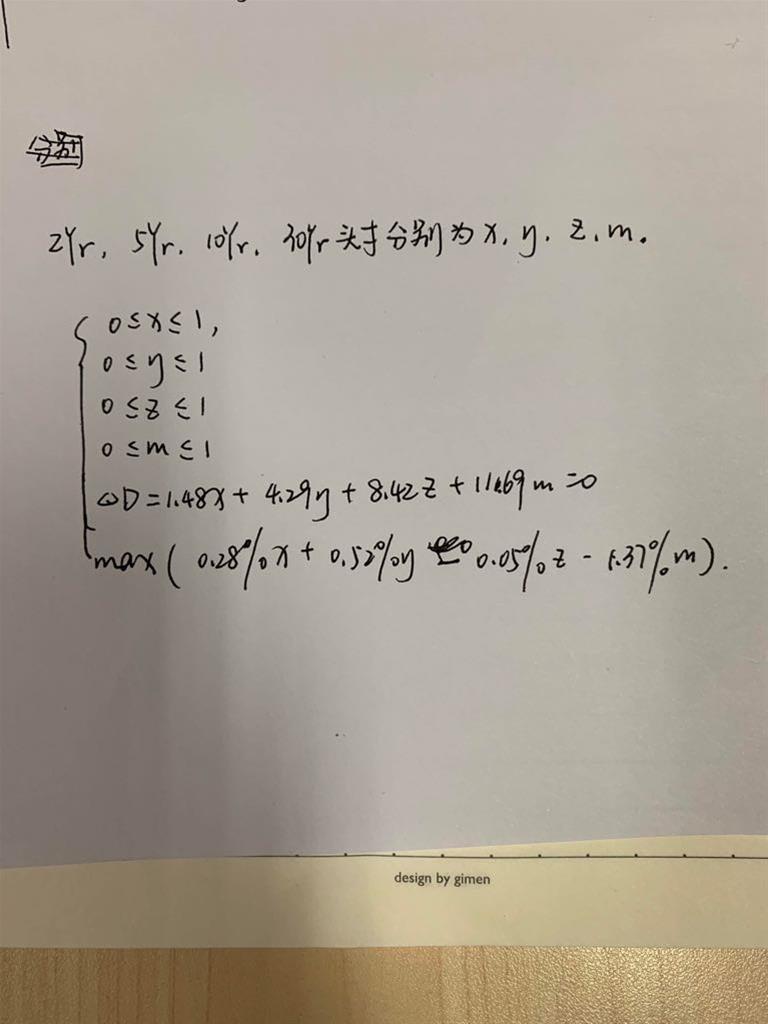 2Yr, 5Yr, 10Yr, 30Yr 头寸分别为 x, y, z, m。
0≤x≤1,
0≤y≤1
0≤z≤1
0≤m≤1
ωD=1.48x+4.29y+8.42z+11.69m=0
max(0.28%x+0.52%y 0.05%z-1.37%m).
design by gimen